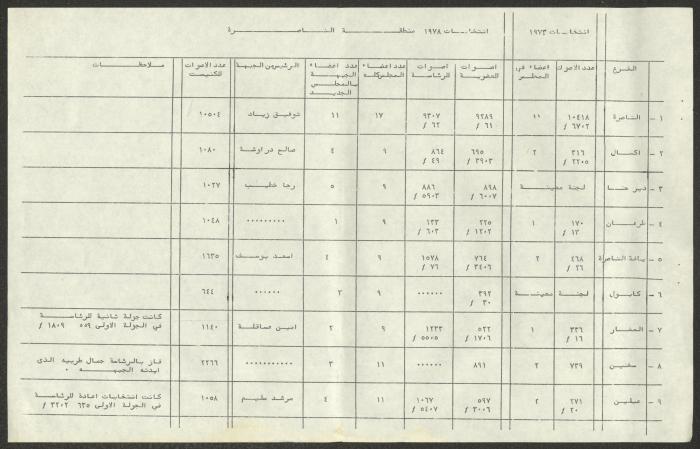 انتخابات ١٩٧٣
انتخابات ١٩٧٨ منطقة الناصرة
الفرع
عدد الاصوات
اعضاء في المجلس
اصوات للعضوية
اصوات للرئاسة
عدد اعضاء المجلس كله
عدد اعضاء الجبهة بالمجلس الجديد
الرئيس من الجبهة
عدد الاصوات للكنيست
ملاحظات
١ - الناصرة ١٠٤١٨ ١١ ٩٢٨٩ ٩٣٠٧ ١٧ ١١ توفيق زياد ١٠٥٠٤
٦٧٠٢ ٪ ٦١ ٪ ٦٢ ٪
٢ - اكسال ٣١٦ ٢ ٦٩٥ ٨٦٤ ٩ ٤ صالح دراوشة ١٠٨٠
٢٢٠٥ ٪ ٣٩٠٣ ٪ ٤٩ ٪
٣ - دير حنا لجنة معينة ٨٩٨ ٨٨٦ ٩ ٥ رجا خطيب ١٠٢٧
٦٠٠٧ ٪ ٥٩٠٣ ٪
٤ - طرعان ١٧٠ ١ ٢٢٥ ١٣٣ ٩ ١ ٠٠٠٠٠٠٠٠٠ ١٠٤٨
١٣ ٪ ١٢٠٢ ٪ ٦٠٣ ٪
٥ - يافة الناصرة ٤٦٨ ٢ ٧٦٤ ١٥٧٨ ٩ ٤ اسعد يوسف ١٦٣٥
٢٦ ٪ ٣٤٠٦ ٪ ٧٦ ٪
٦ - كابول لجنة معينة ٣٩٢ ٠٠٠٠٠٠ ٩ ٣ ٠٠٠٠٠٠ ٦٤٤
٣٠ ٪
٧ - المغار ٣٣٦ ١ ٥٢٢ ١٢٣٣ ٩ ٢ امين عساقلة ١١٤٠ كانت جولة ثانية للرئاسة
١٦ ٪ ١٧٠٦ ٪ ٥٥٠٥ ٪ في الجولة الاولى ٥٥٩ ١٨٠٩ ٪
٨ - سخنين ٧٣٩ ٢ ٨٩١ ٠٠٠٠٠٠ ١١ ٣ ٠٠٠٠٠٠٠٠٠٠٠ ٢٢٦٦ فاز بالرئاسة جمال طربيه الذى
ايدته الجبهه ٠
٩ - عبلين ٢٧١ ٢ ٥٩٧ ١٠٦٧ ١١ ٤ مرشد سليم ١٠٥٨ كانت انتخابات اعادة للرئاسة
٢٠ ٪ ٣٠٠٦ ٪ ٥٤٠٧ ٪ في الجولة الاولى ٦٣٥ ٣٢٠٢ ٪